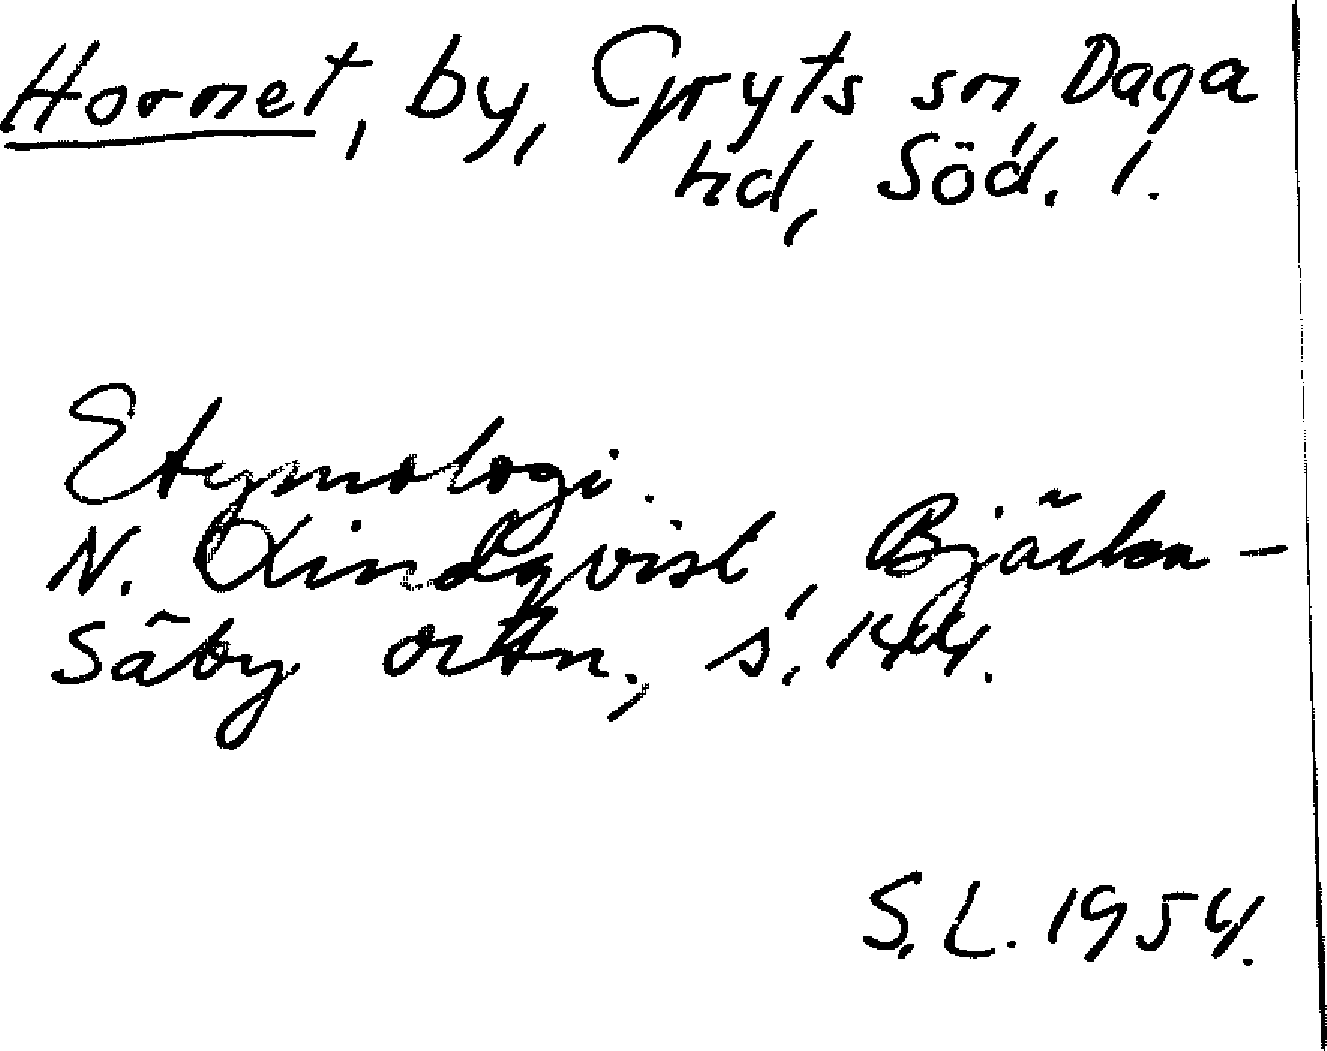 Hornet, by, Gryts sn, Daga
hd, Söd. l.
Etymologi.
N. Lindqvist, Bjärka-
Säby ortn., s. 144.
S.L. 1954.